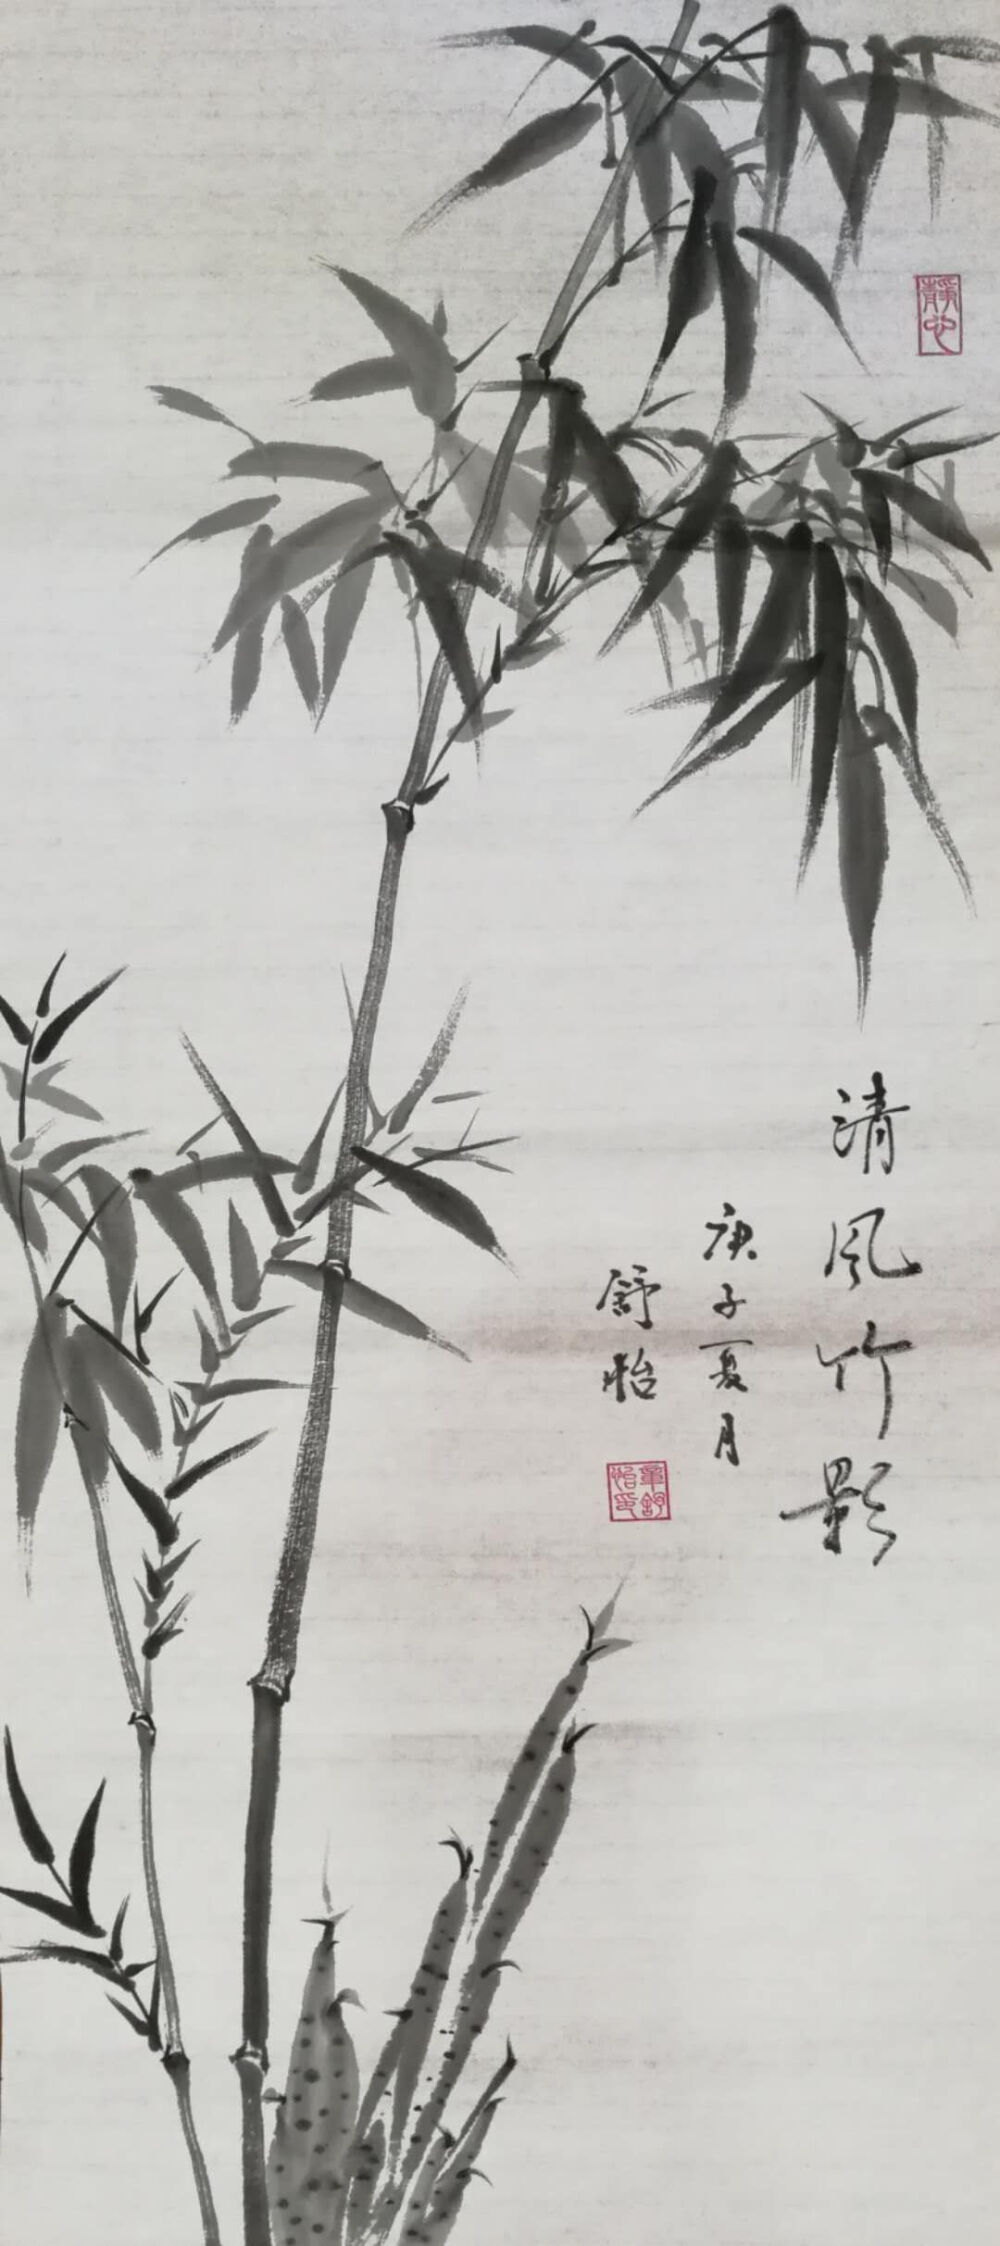 清风竹影
庚子夏月
舒怡
静心